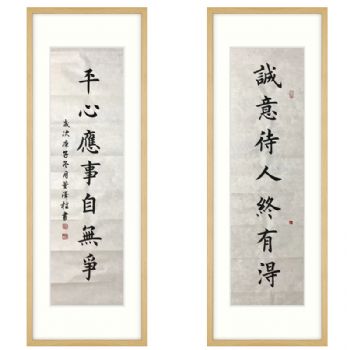 誠意待人終有淂
平心應事自無爭
歲次庚子冬月
書